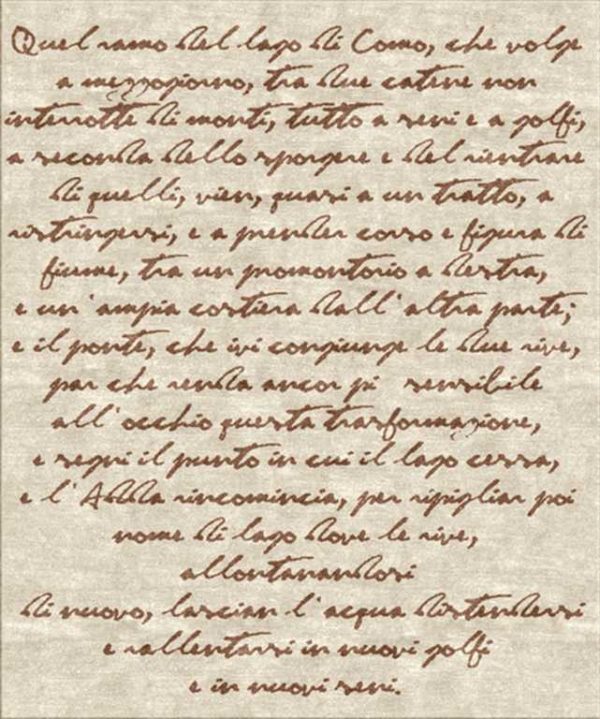 Quel ramo del lago di Como, che volge
a mezzogiorno, tra due catene non
interrotte di monti, tutto a seni e a golfi,
a seconda dello sporgere e del rientrare
di quelli, vien, quasi a un tratto, a
ristringersi, e a prender corso e figura di
fiume, tra un promontorio a destra,
e un'ampia costiera dall'altra parte;
e il ponte, che ivi congiunge le due rive,
par che renda ancor pi sensibile
all'occhio questa trasformazione,
e segni il punto in cui il lago cessa,
e l'Adda rincomincia, per ripigliar poi
nome di lago dove le rive,
allontanandosi
di nuovo, lascian l'acqua distendersi
e rallentarsi in nuovi golfi
e in nuovi seni.